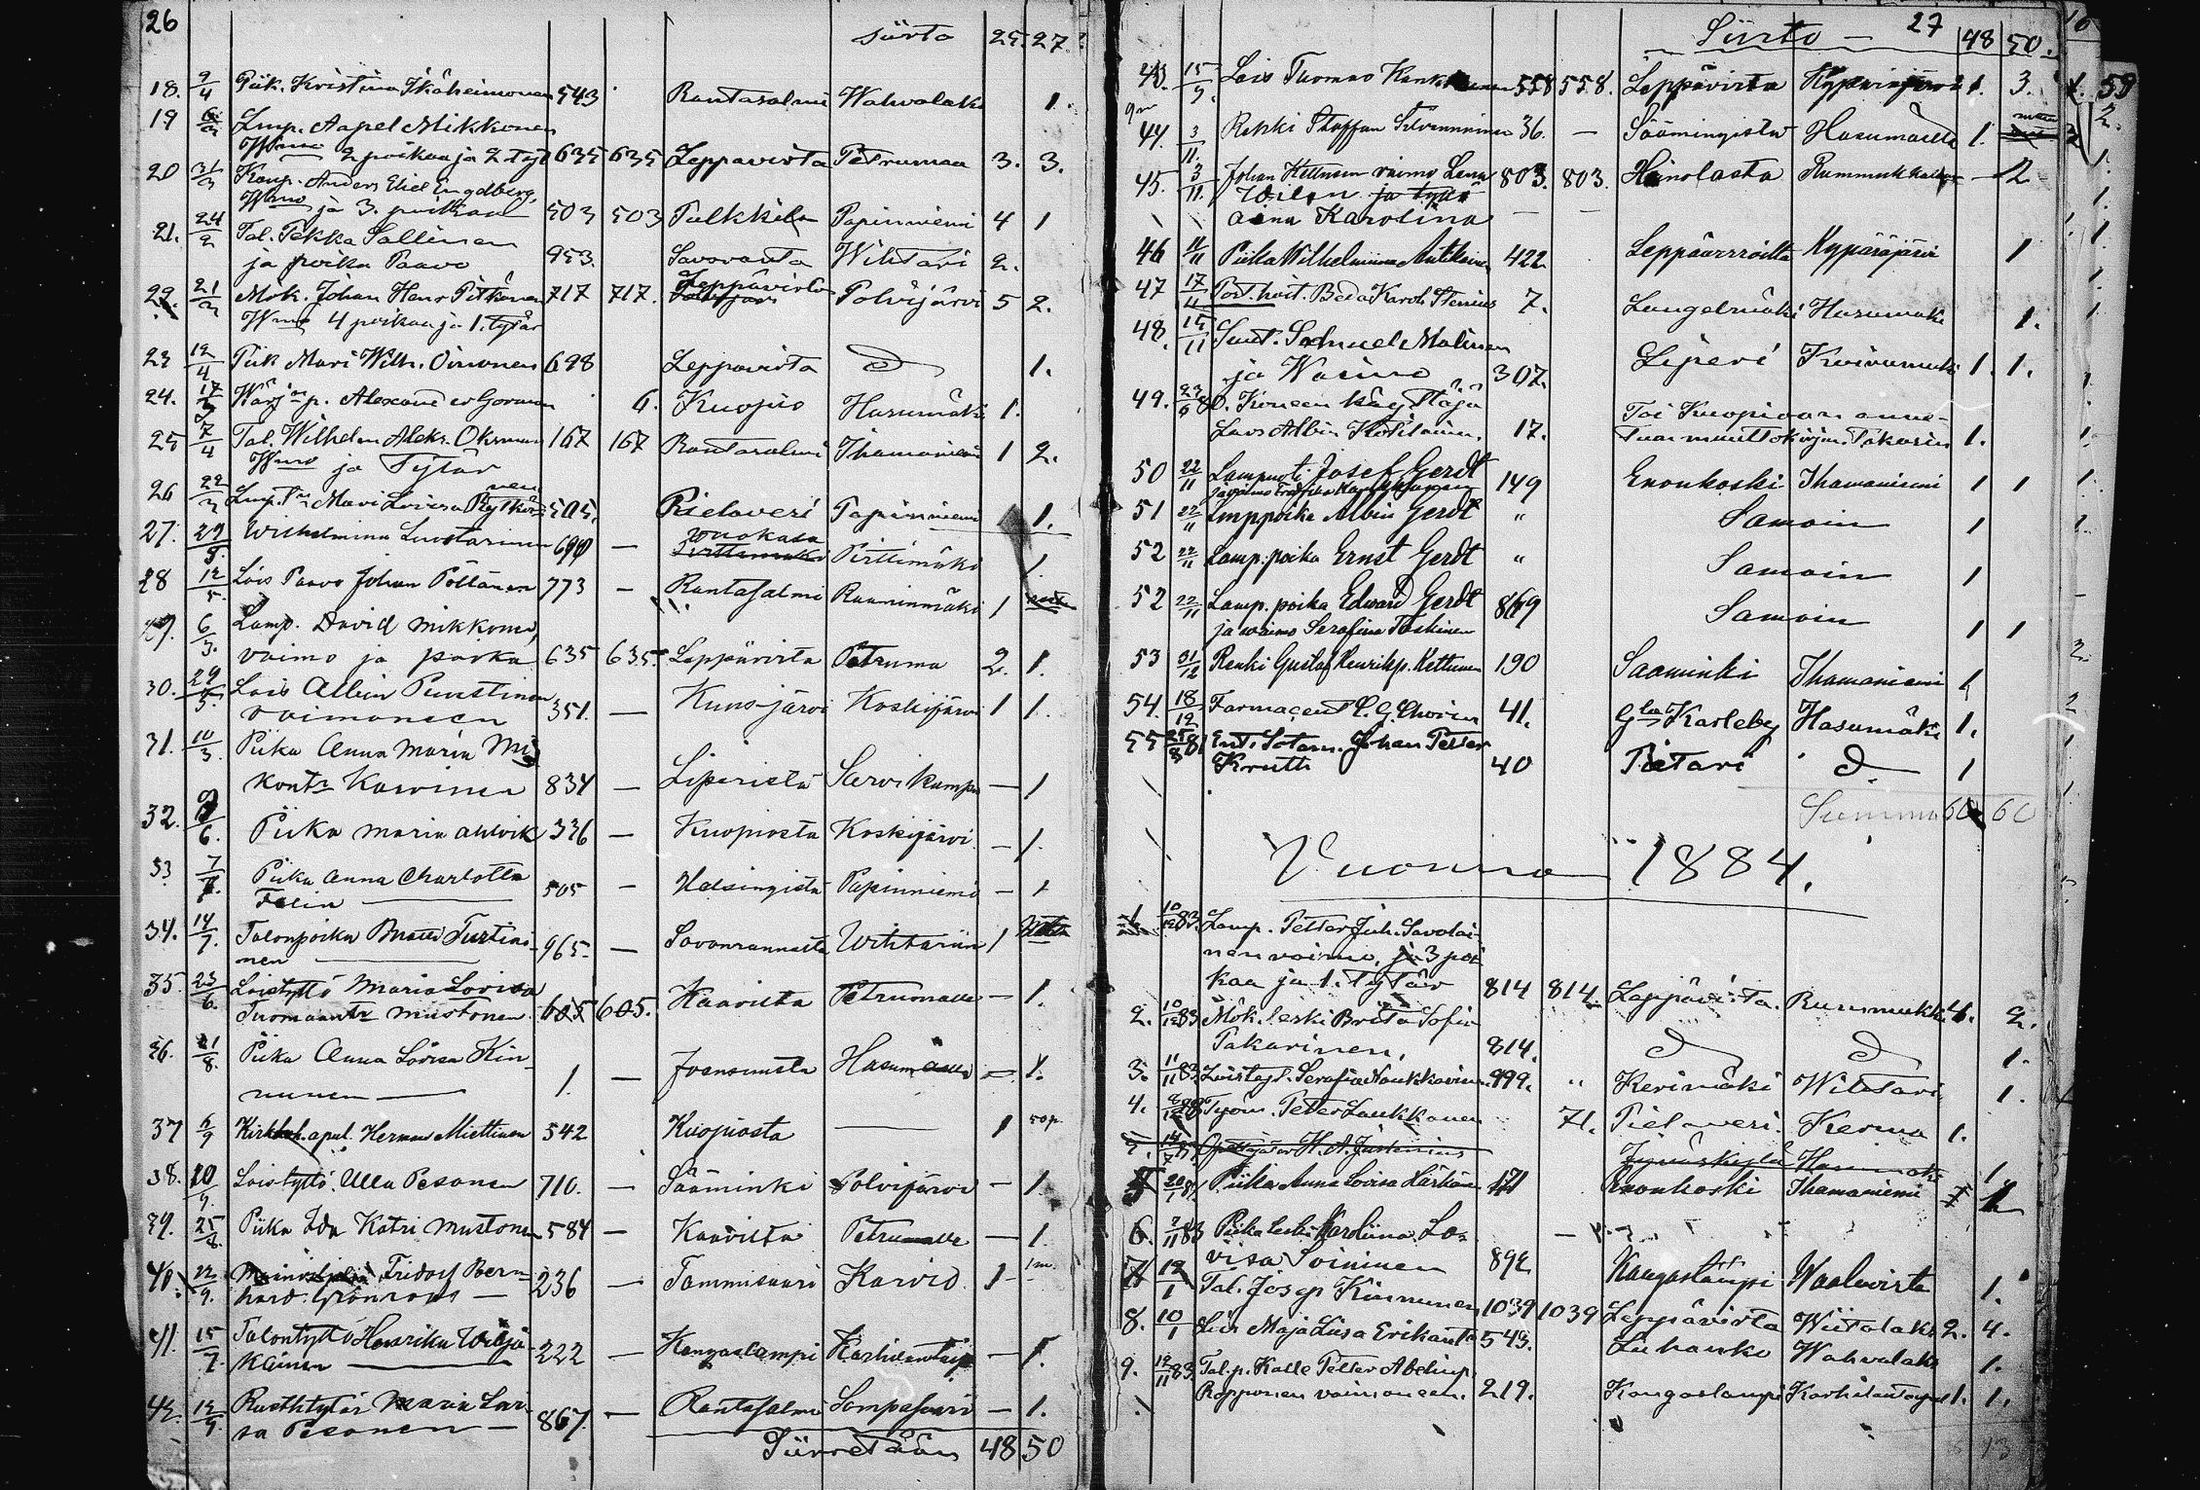 26
Siirto 25. 27.
18. 9/4 Piik. Kristina Ikäheimonen 543 Rantasalmi Wahvalaks 1.
19 Lmp. Aapel Mikkonen
Wmo 2 poikaa ja 2 tyt 635 635 Leppävirta Petrumaa 3. 3.
20 31/3 Kaup. Anders Eliel Engdberg,
Wmo ja 3. poikaa 503 503 Pulkkila Papinniemi 4 1
21. 24/2 Tal. Pekka Sallinen
ja poika Paavo 953. Savoranta Wihtari 2.
22. 21/3 Mök. Johan Henr Pitkänen 717 717. Leppävirta Polvijärvi 5 2.
Wmo 4 poikaa ja 1. tytär
23 12/4 Piik Mari Wilh. Oinonen 698 Leppävirta D 1.
24. 17/3 Wärj. p. Alexander Gorman 6. Kuopio Hasumäki 1.
25 7/4 Tal. Wilhelm Aleks. Oksman 167 167 Rantasalmi Ihamaniemi 1 2.
Wmo ja Tytär
26 22/3 Lmp. Mari Lovisa Rytkönen 505. Pielavesi Papinniemi 1.
27. 29/5. Wilhelmina Luostarinen 690 — Pirttimäki 1.
28 12/5. Lois Paavo Johan Pöllänen 773 — Rantasalmi Rauninmäki 1
29. 6/3. Lamp. David Mikkonen,
vaimo ja poika 635 635. Leppävirta Petruma 2. 1.
30. 29/5. Lois Albin Puustinen
vaimoneen 351. — Kuusjärvi Koskijärvi 1 1.
31. 10/3. Piika Anna Maria Mi
kontr Karvinen 834 — Liperistä Sarvikumpu — 1
32. 6. Piika Maria Ahlvik 336 — Kuopiosta Koskijärvi — 1.
33 7/7. Piika Anna Charlotta
Felin 505 — Helsingistä Papinniemi — 1
34. 14/7. Talonpoika Matti Turtiai-
nen 965 — Savonrannasta Wihtariin 1
35. 23/6. Loistyttö Maria Lovisa
Tuomaantr Mustonen 605 605. Kaavilta Petrumalle — 1.
36. 21/8. Piika Anna Lovisa Kin-
nunen 1. — Joensuusta Hasumäelle — 1.
37 6/9 Kirkkoh. apul. Herman Miettinen 542 Kuopiosta — 1 50 p.
38. 10/9. Loistyttö Ulla Pesonen 710. — Sääminki Polvijärvi — 1.
39. 25/8. Piika Ida Katri Mustonen 584 — Kaavilta Petrumalle — 1.
40. 12/9. Fridolf Bern-
hard Grönroos — 236 — Tammisaari Karvio 1 1 m.
41. 15/9. Talontyttö Henrika Wilja-
kainen 222 — Kangaslampi Karhilantaip — 1.
42. 12/9. Rusthtytär Maria Lovi-
sa Pesonen — 867. — Rantasalmi Sompasaari — 1.
Siirretään 48 50
27
Siirto — 48 50.
43. 15/9. Lois Tuomas 558 558. Leppävirta Kypärijärvi 1. 3.
44. 3/11. Renki Staffan Silvennoinen 36. — Säämingistä Hasumäelle 1.
45. 3/11. Johan Kettunen vaimo Lena 803. 803. Heinolasta Rummukkalaan — 2
Wilen ja tytär
Anna Karolina — —
46 11/11 Piika Wilhelmiina Antikainen 422 Leppävirroilta Kypäräjärvi 1
47 17/11 Post. hoit. Beda Karol. Stenius 7. Längelmäki Hasumäki 1.
48. 15/11 Suut. Samuel Malinen
ja Waimo 307. Liperi Koivumäki 1. 1.
49. 23/6 Koneen käyttäjä Toi Kuopioon anne-
Lars Albin Kotilainen. 17. tun muuttokirjan Takaisin 1.
50 22/11 Lampuoti Josef Gerdt 149 Enonkoski Ihamaniemi 1 1
51 22/11 Lmppoika Albin Gerdt " Samoin 1
52 22/11 Lamp. poika Ernst Gerdt " Samoin 1
52 22/11 Lamp. poika Edward Gerdt 869 Samoin 1 1
ja vaimo Serafina Toskinen
53 31/12 Renki Gustaf Henrikp. Kettunen 190 Sääminki Ihamaniemi 1
54. 18/12 Farmaceut 41. Gla Karleby Hasumäki 1.
55 Ent. Sotam. Johan Petter
Krutt 40 Pietari D. 1
Summa 60 60
Vuonna 1884.
1. 10/12 83. Lamp. Petter Juh. Savolai-
nen vaimo, ja 3 poi
kaa ja 1. tytär 814 814. Leppävirta. Rummukk 4. 2.
2. 10/12 83 Mök. leski Brita Sofia
Takarinen, 814. D D 1.
3. 11/11 83 Loistyt. Serafia Naukkarinen 999. " Kerimäki Wihtari 1.
4. Työm. Petter Laukkanen 71. Pielavesi. Kerma 1.
5 20/1 Piika Anna Lovisa Härkönen 171 Enonkoski Ihamaniemi 1
6. 7/11 83 Piika leski Karoliina Lo-
visa Soininen 892 Kangaslampi Waaluvirta 1.
7 12/1 Tal. Josep Kinnunen 1039 1039 Leppävirta Wiitalaks 2. 4.
8. 10/1 Lois Maja Liisa Erikantr 543. Luhanko Wahvalaks 1.
9. 12/11 83 Tal. p. Kalle Petter Abelinp.
Ropponen vaimoneen. 219. Kangaslampi Karhilantaipal 1. 1.
13